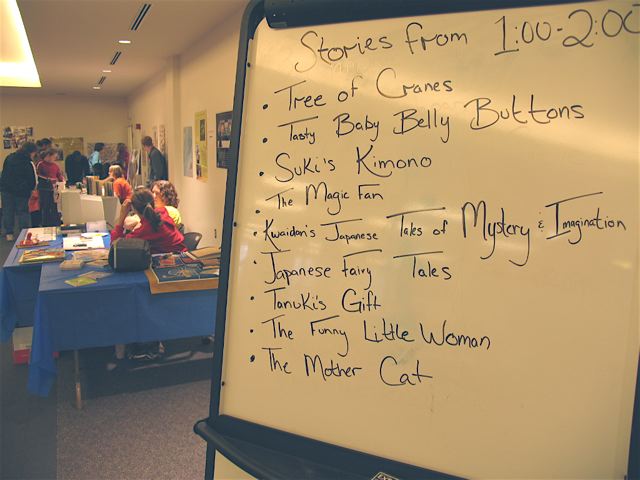 Stories from 1:00-2:00
• Tree of Cranes
• Tasty Baby Belly Buttons
• Suki's Kimono
• The Magic Fan
• Kwaidan's Japanese Tales of Mystery & Imagination
• Japanese Fairy Tales
• Tanuki's Gift
• The Funny Little Woman
• The Mother Cat